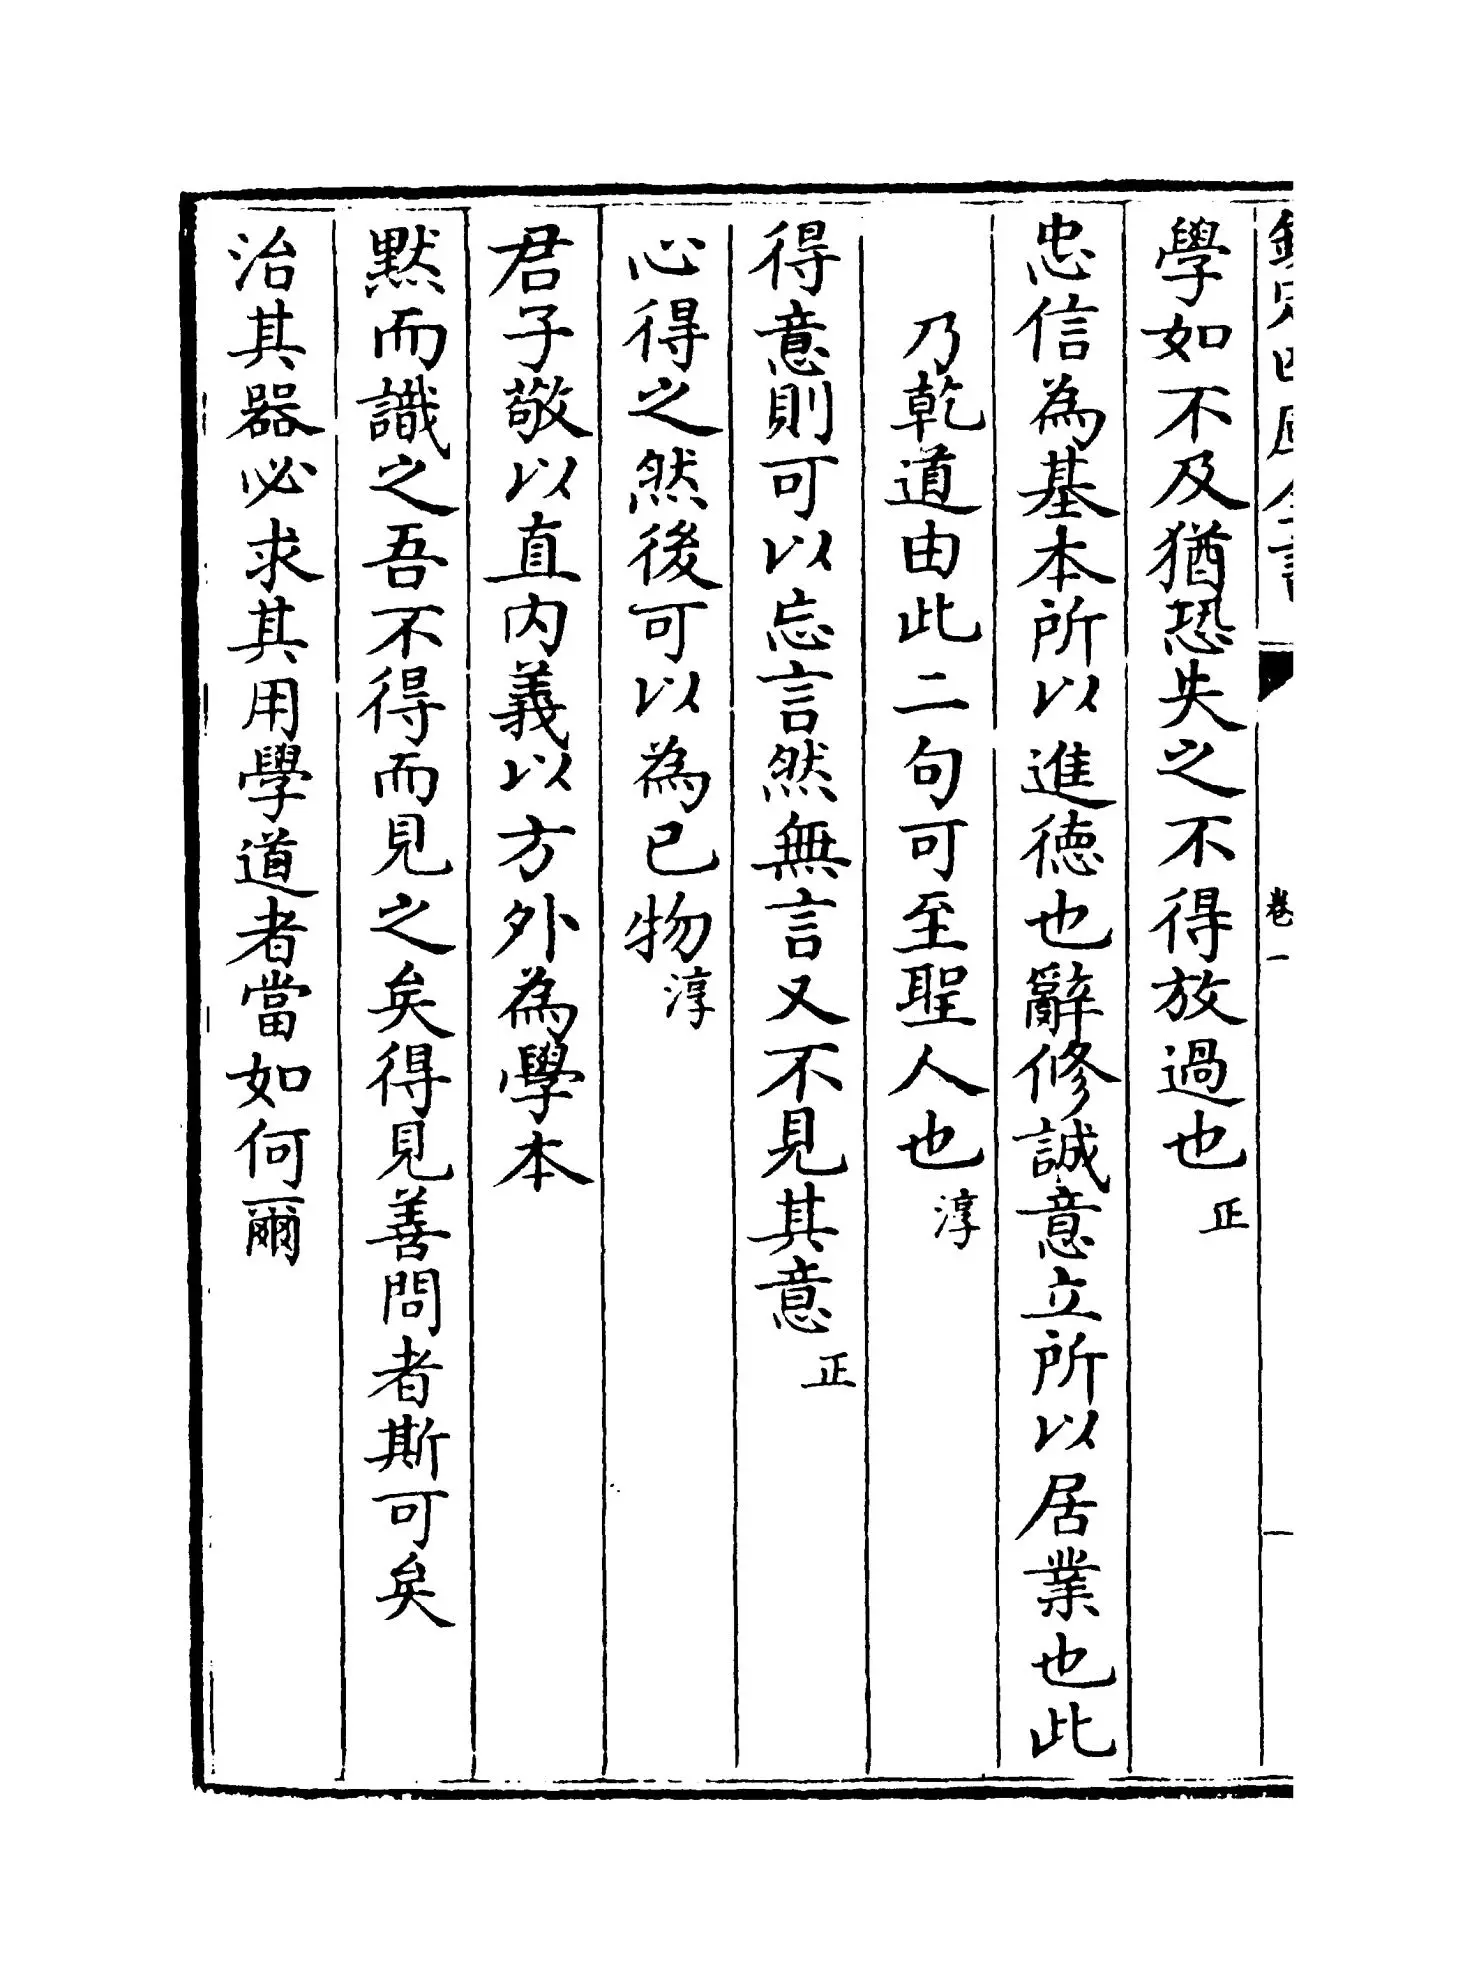 欽定四庫全書
卷一
學如不及猶恐失之不得放過也正
忠信為基本所以進徳也辭修誠意立所以居業也此
乃乾道由此二句可至聖人也淳
得意則可以忘言然無言又不見其意正
心得之然後可以為已物淳
君子敬以直内義以方外為學本
黙而識之吾不得而見之矣得見善問者斯可矣
治其器必求其用學道者當如何爾